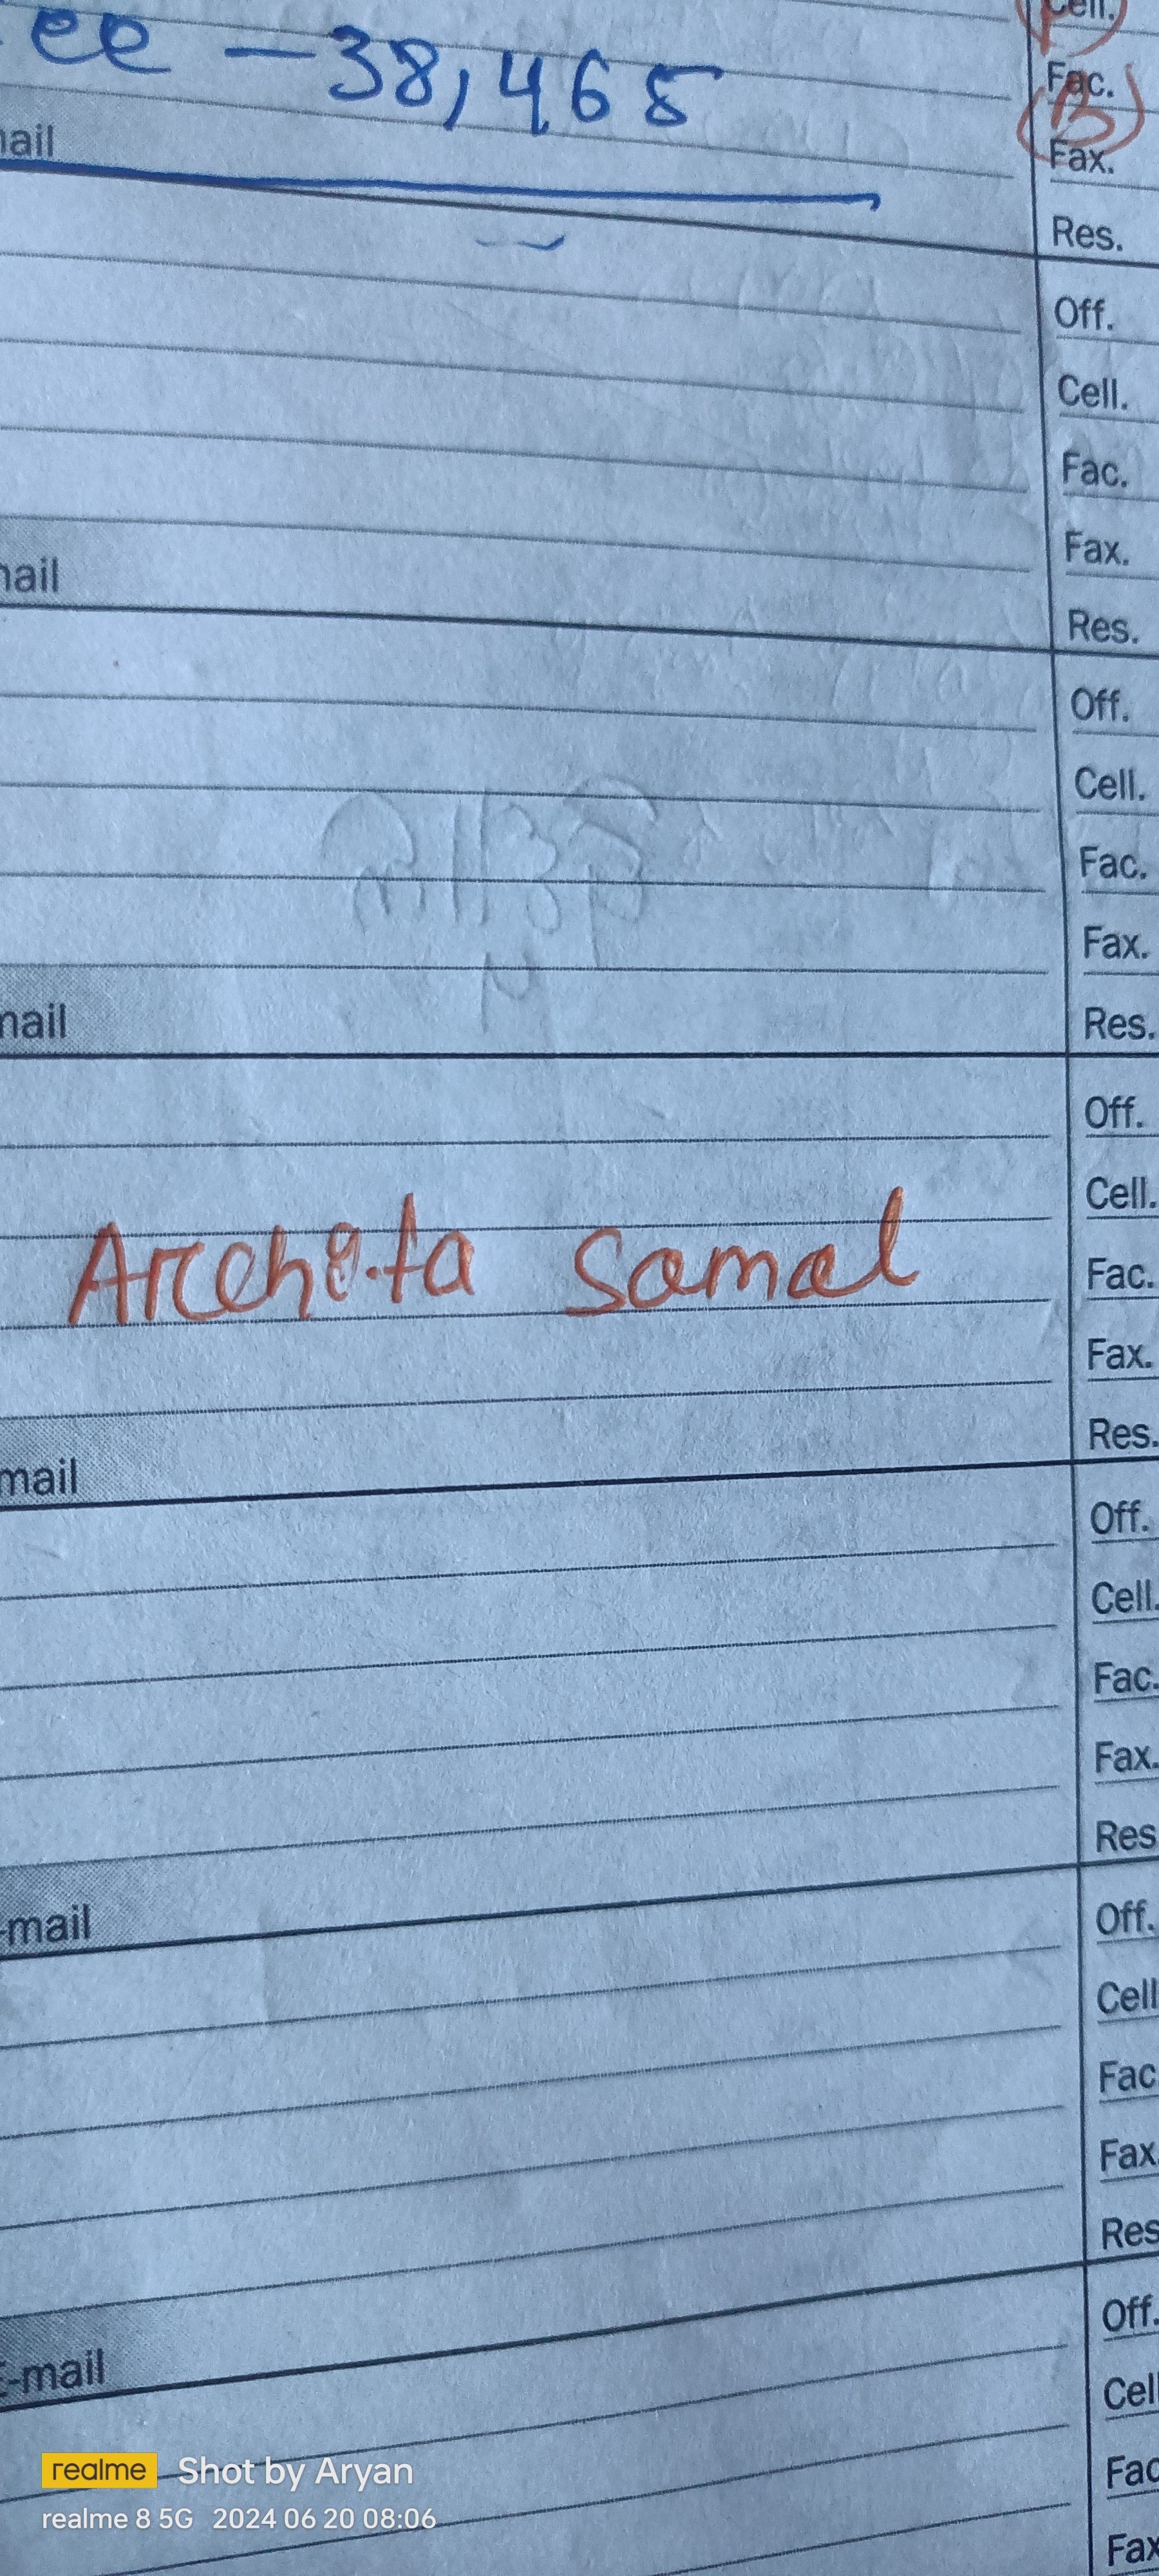 ee - 38,465
Cell.
Fac.
(B)
Fax.
mail
Res.
Off.
Cell.
Fac.
Fax.
mail
Res.
Off.
Cell.
Fac.
Fax.
mail
Res.
Off.
Cell.
Archita Samal
Fac.
Fax.
Res.
mail
Off.
Cell.
Fac.
Fax.
Res
-mail
Off.
Cell
Fac
Fax
Res
E-mail
Off.
Cell
Fac
Fax
realme Shot by Aryan
realme 8 5G 2024 06 20 08:06